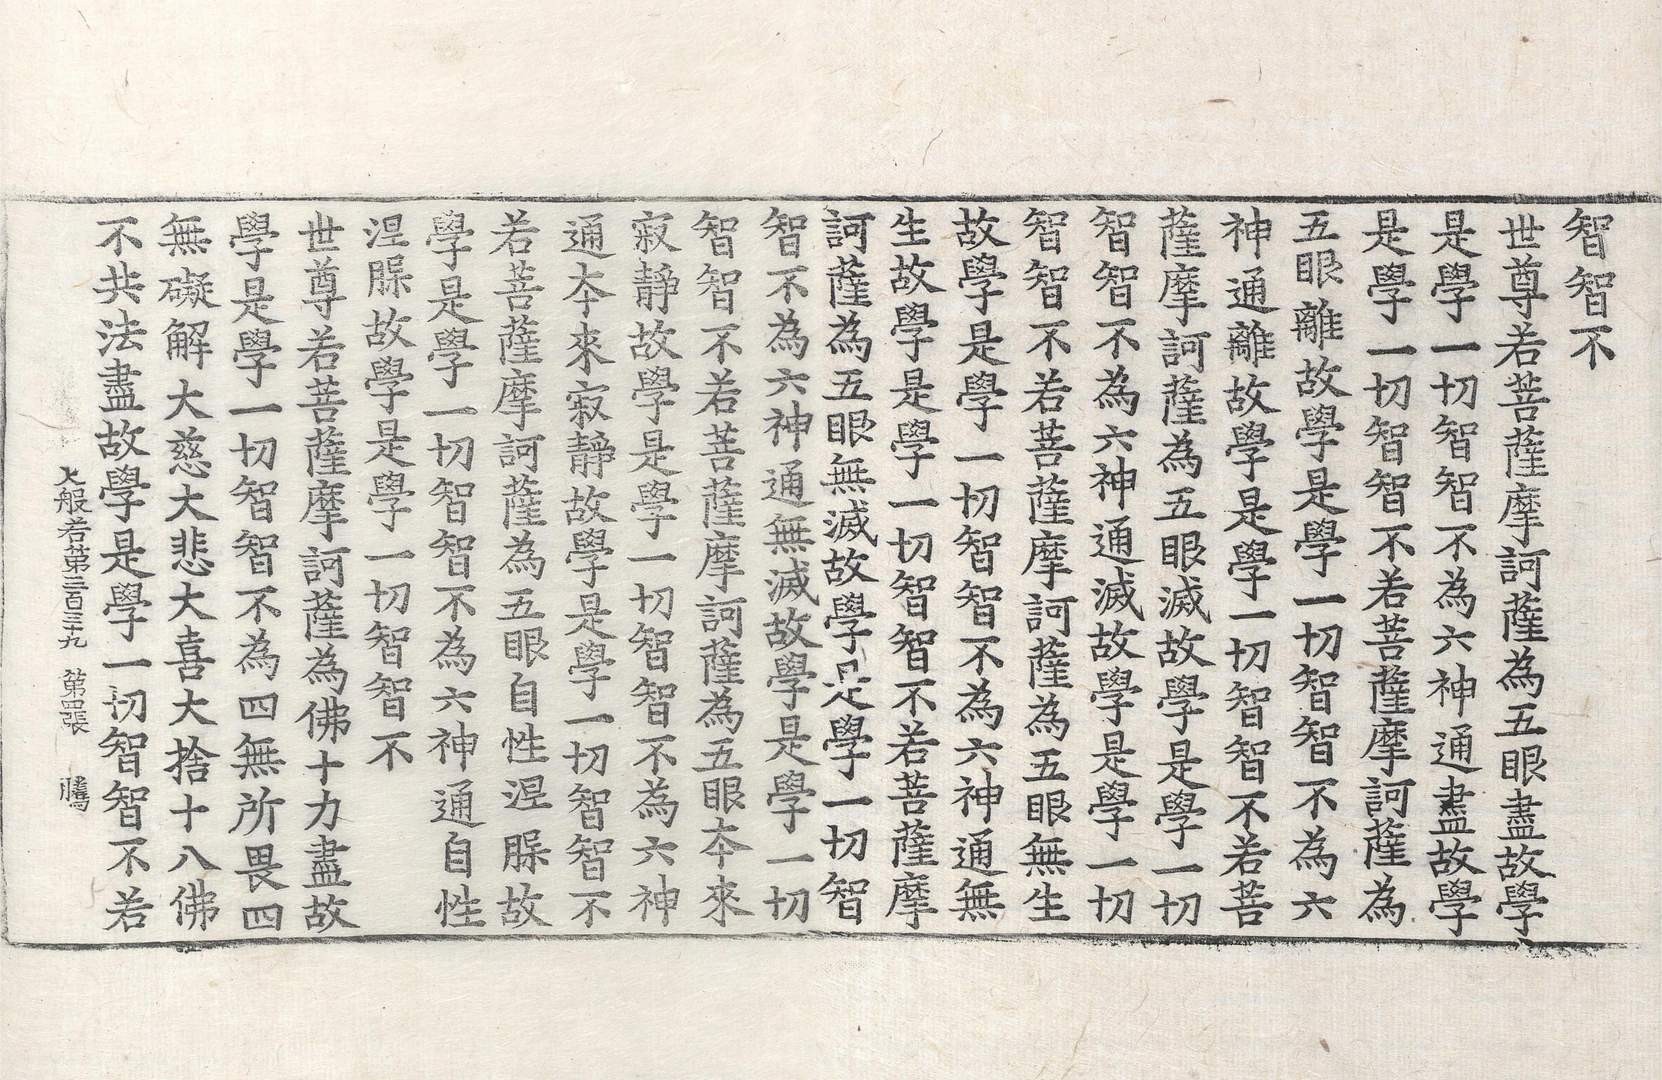 智智不
世尊若菩薩摩訶薩為五眼盡故學
是學一切智智不為六神通盡故學
是學一切智智不若菩薩摩訶薩為
五眼離故學是學一切智智不為六
神通離故學是學一切智智不若菩
薩摩訶薩為五眼滅故學是學一切
智智不為六神通滅故學是學一切
智智不若菩薩摩訶薩為五眼無生
故學是學一切智智不為六神通無
生故學是學一切智智不若菩薩摩
訶薩為五眼無滅故學是學一切智
智不為六神通無滅故學是學一切
智智不若菩薩摩訶薩為五眼本來
寂靜故學是學一切智智不為六神
通本來寂靜故學是學一切智智不
若菩薩摩訶薩為五眼自性涅槃故
學是學一切智智不為六神通自性
涅槃故學是學一切智智不
世尊若菩薩摩訶薩為佛十力盡故
學是學一切智智不為四無所畏四
無礙解大慈大悲大喜大捨十八佛
不共法盡故學是學一切智智不若
大般若第三百三十九 第四張 騰